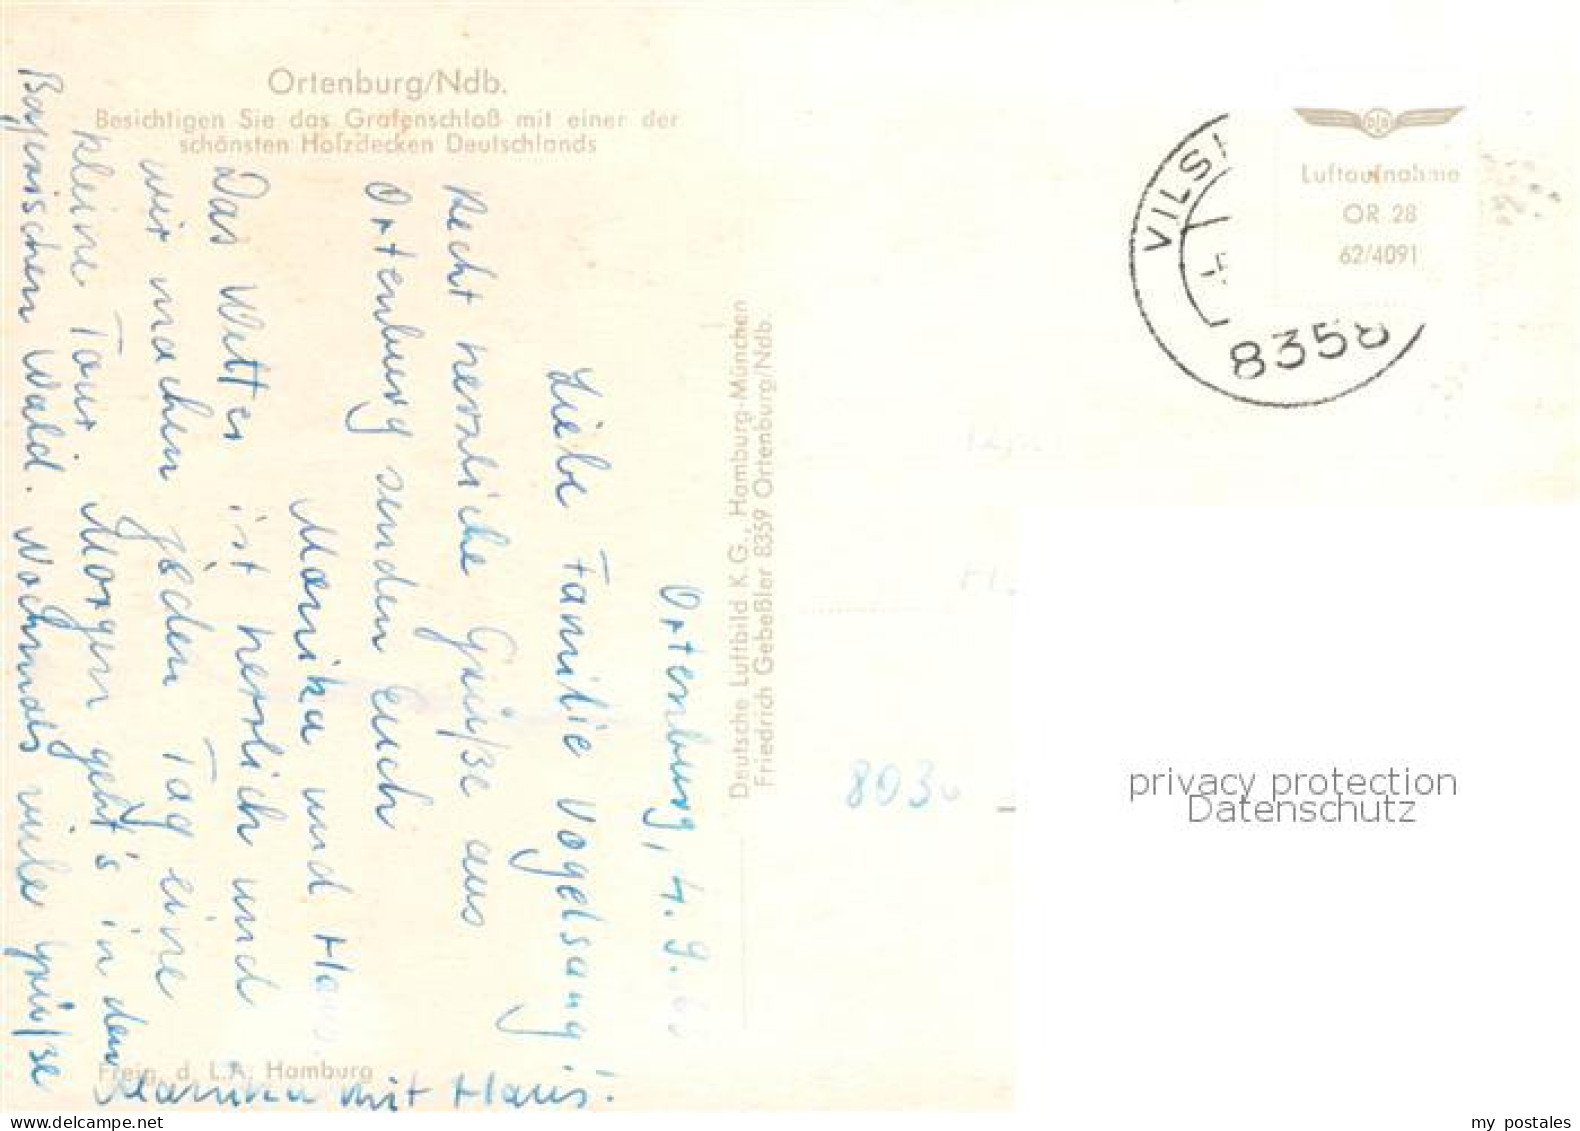 Ortenburg/Ndb.
Besichtigen Sie das Grafenschloß mit einer der
schönsten Holzdecken Deutschlands
Ortenburg, 4.9.
Liebe Familie Vogelsang!
Recht herzliche Grüße aus
Ortenburg senden Euch
Marika und Hans.
Das Wetter ist herrlich und
wir machen jeden Tag eine
kleine Tour. Morgen geht's in den
Bayrischen Wald. Nochmals viele Grüße
Marika mit Hans!
Freig. d. L.A. Hamburg
Deutsche Luftbild K.G., Hamburg-München
Friedrich Gebeßler 8359 Ortenburg/Ndb.
Luftaufnahme
OR 28
62/4091
VILS
8358
803
privacy protection
Datenschutz
www.delcampe.net
my postales